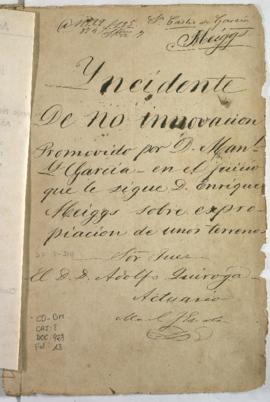 Meiggs
Yncidente
De no innovacion
Promovido por D. Man.l
Y Garcia en el juicio
que le sigue D. Enrique
Meiggs sobre expro-
piacion de unos terrenos
Sor Juez
El D. D. Adolfo Quiroga
Actuario
CD-OM
CAJ:
DOC: 923
Fol: 13